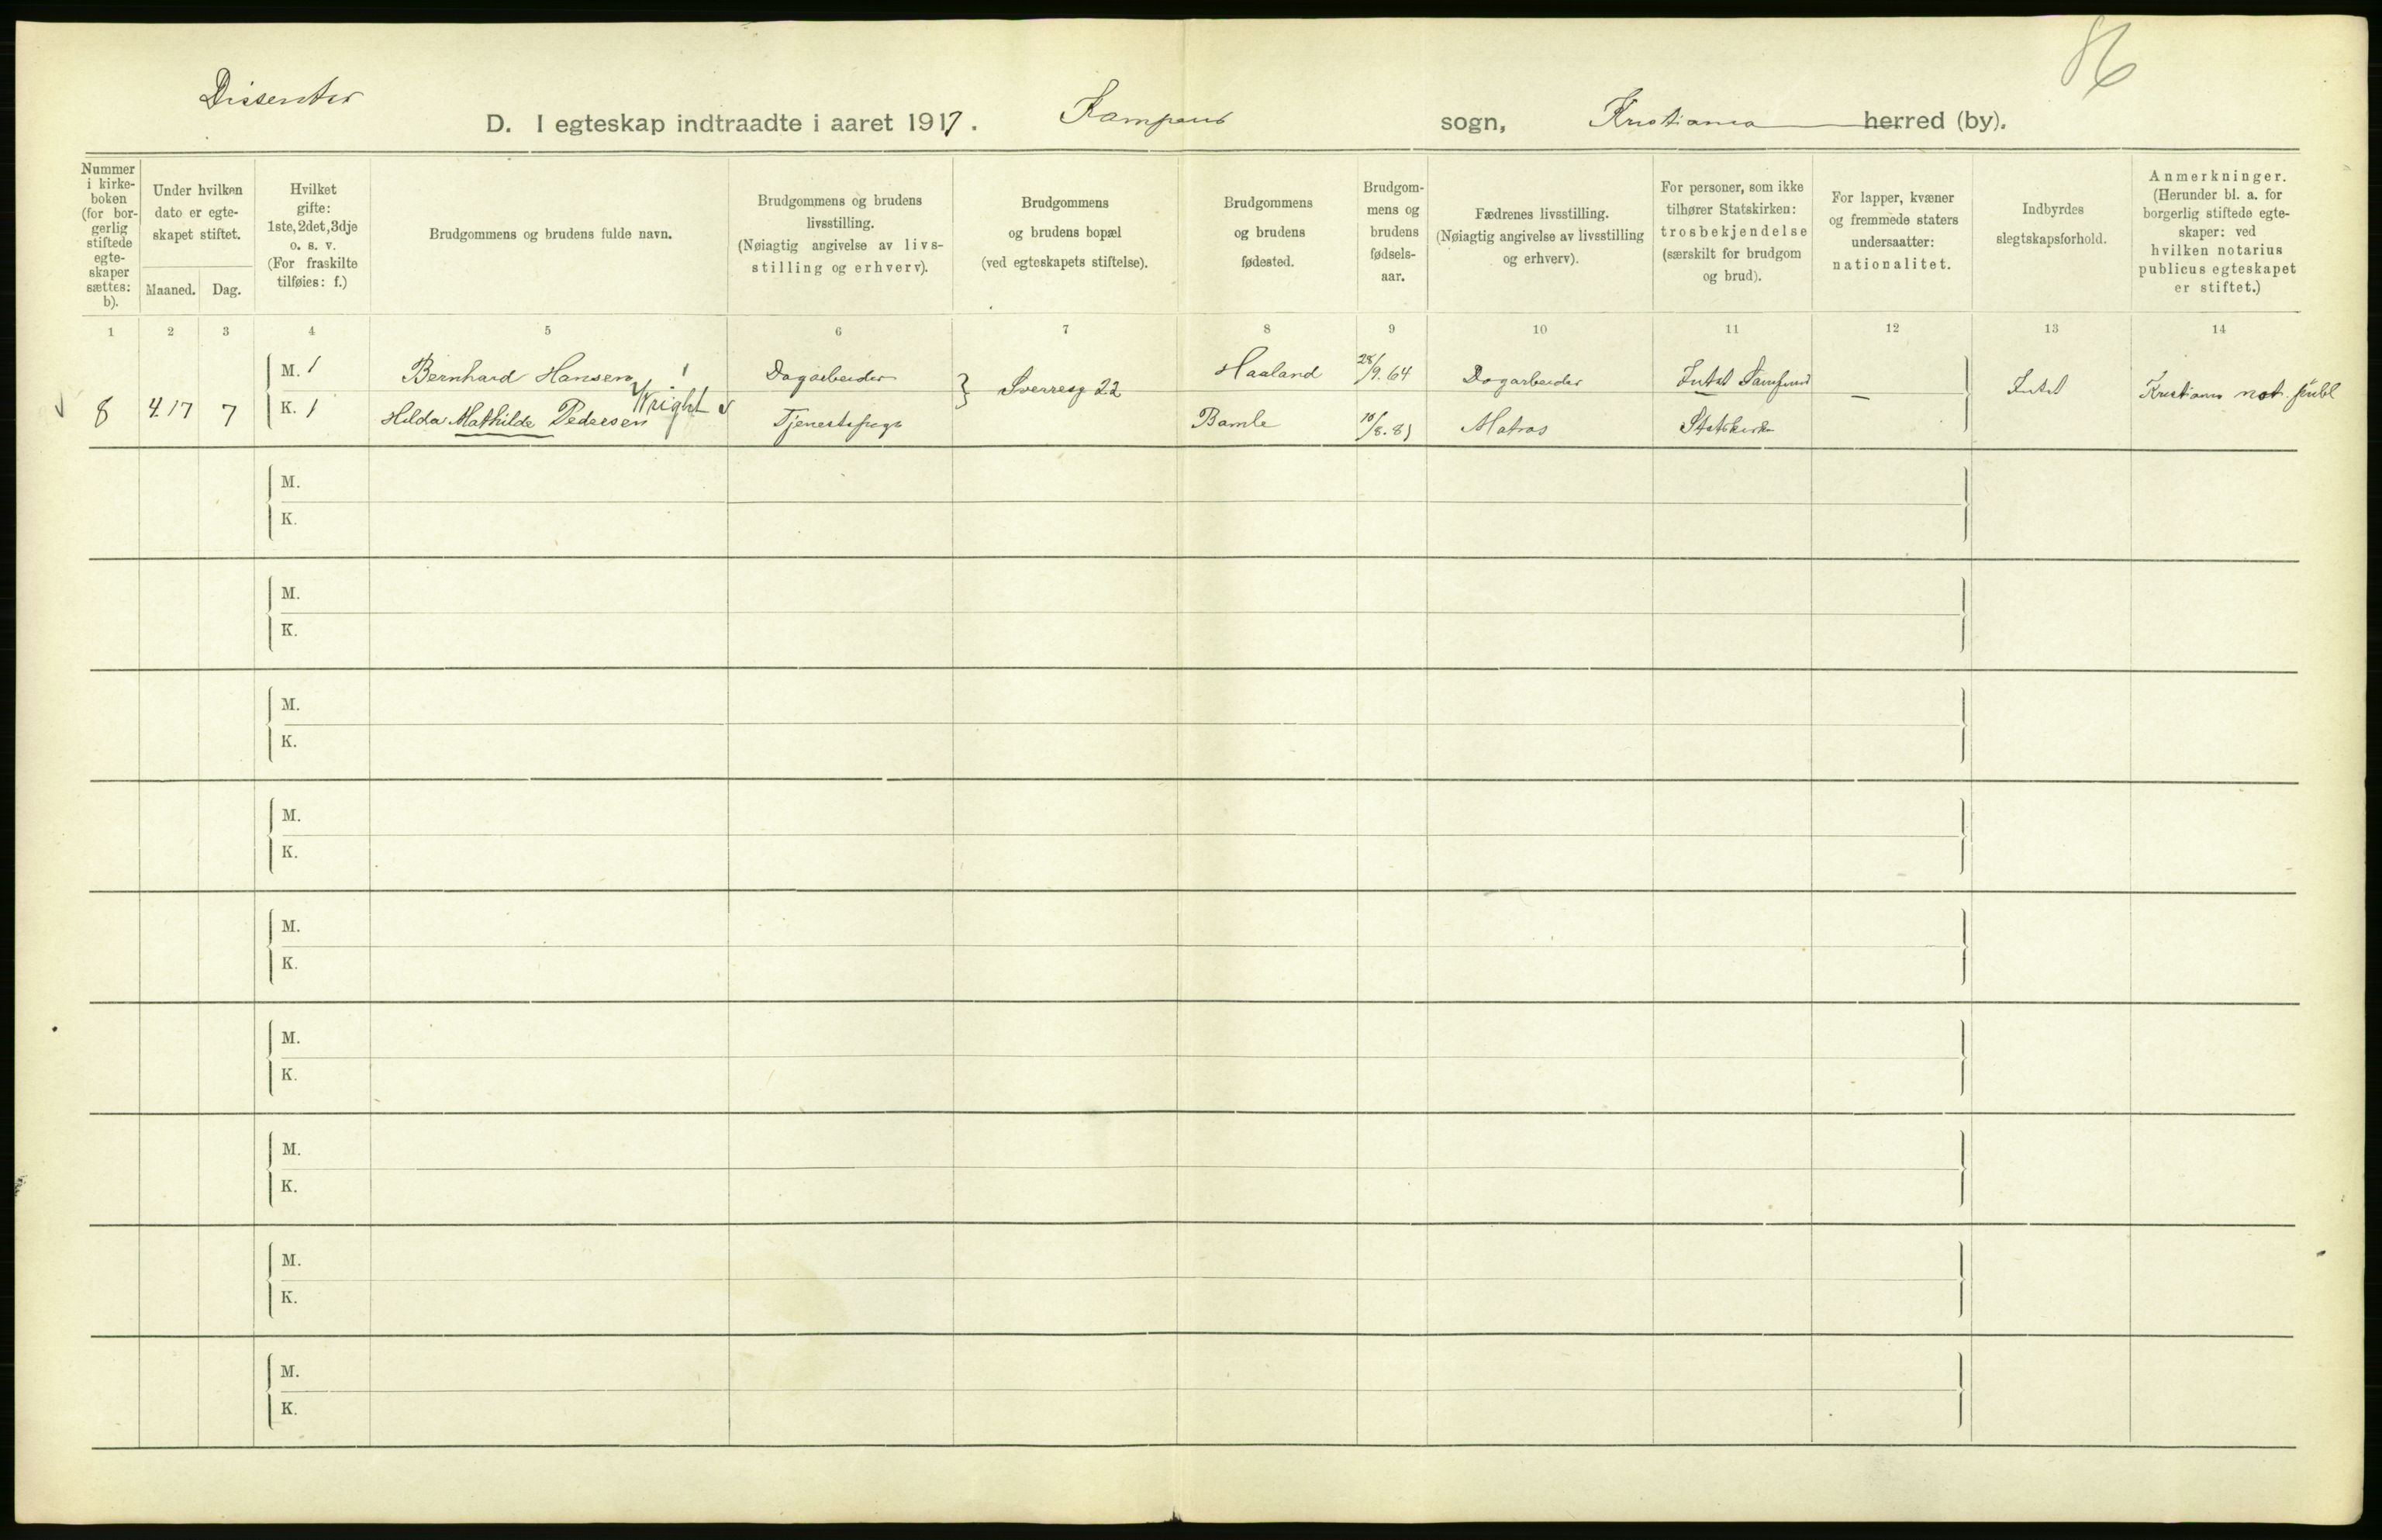 86
Dissenter
D. I egteskap indtraadte i aaret 1917. Kampens sogn, Kristiania herred (by).
Nummer i kirke- boken (for bor- gerlig stiftede egte- skaper sættes: b).
Under hvilken dato er egte- skapet stiftet.
Maaned. Dag.
Hvilket gifte: 1ste, 2det, 3dje o. s. v. (For fraskilte tilføies: f.)
Brudgommens og brudens fulde navn.
Brudgommens og brudens livsstilling. (Nøiagtig angivelse av livs- stilling og erhverv).
Brudgommens og brudens bopæl (ved egteskapets stiftelse).
Brudgommens og brudens fødested.
Brudgom- mens og brudens fødsels- aar.
Fædrenes livsstilling. (Nøiagtig angivelse av livsstilling og erhverv).
For personer, som ikke tilhører Statskirken: trosbekjendelse (særskilt for brudgom og brud).
For lapper, kvæner og fremmede staters undersaatter: nationalitet.
Indbyrdes slegtskapsforhold.
Anmerkninger. (Herunder bl. a. for borgerlig stiftede egte- skaper: ved hvilken notarius publicus egteskapet er stiftet.)
1 2 3 4 5 6 7 8 9 10 11 12 13 14
M. 1 Bernhard Hansen Dagarbeider Sverresg 22 Haaland 28/9.64 Dagarbeider Intet Samfund — Intet Kristiania not. publ
8 4.17 7 K. 1 Hilda Mathilde Pedersen Wright Tjenestepige Bamle 10/8.81 Matros Statskirken
M.
K.
M.
K.
M.
K.
M.
K.
M.
K.
M.
K.
M.
K.
M.
K.
M.
K.